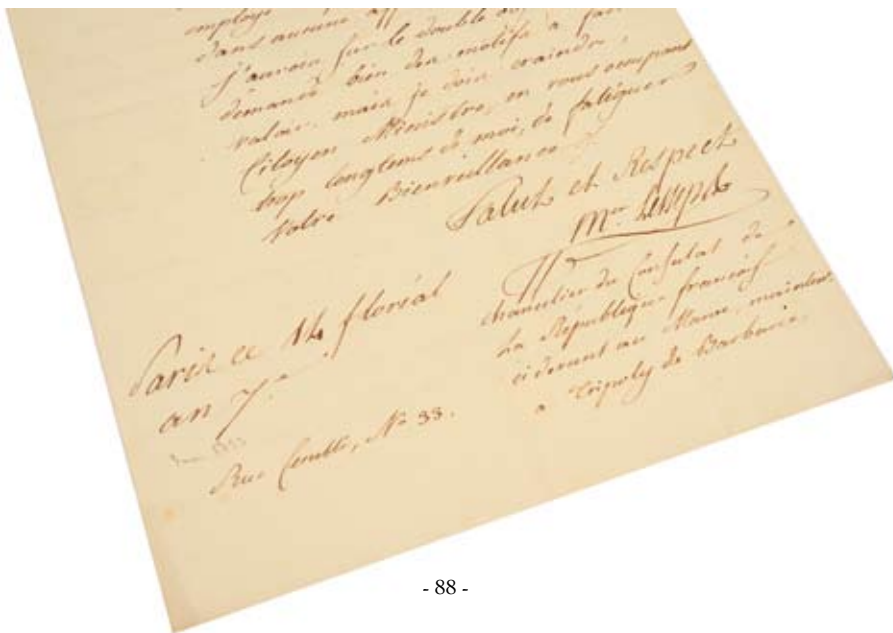 employé
dans aucune aff
J'aurois sur le double
demande bien des motifs a faire
valoir, mais je dois craindre,
Citoyen Ministre, en vous occupant
trop longtems de moi, de fatiguer
votre Bienveillance ./.
Salut et Respect
Mu Lesseps
chancelier du Consulat de
La République françoise
ci devant au Maroc, maintent
a Tripoly de Barbarie.
Paris ce 14 floréal
an 7.e
Rue Cerutti, No 33.
- 88 -